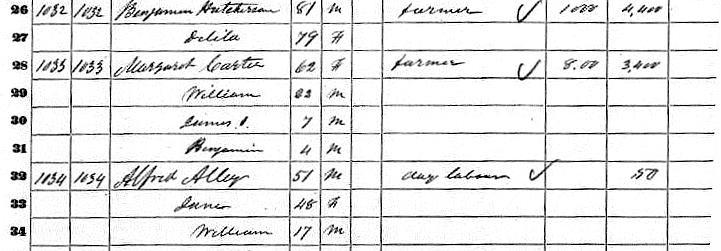 26 1032 1032 Benjamin Hutcherson 81 M farmer ✓ 1000 4,400
27 Delila 79 F
28 1033 1033 Margaret Carter 62 F farmer ✓ 8.00 3,400
29 William 22 M
30 James 7 M
31 Benjamin 4 M
32 1034 1034 Alfred Alley 51 M day labour ✓ 50
33 Jane 48 F
34 William 17 M